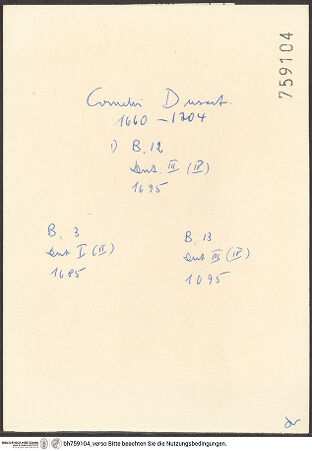 759104
Cornelis Dusart.
1660 - 1704
1) B. 12
Dut. III (IV)
1695
B. 3
Dut I (II)
1685
B. 13
Dut III (IV)
1695
bh759104_verso Bitte beachten Sie die Nutzungsbedingungen.